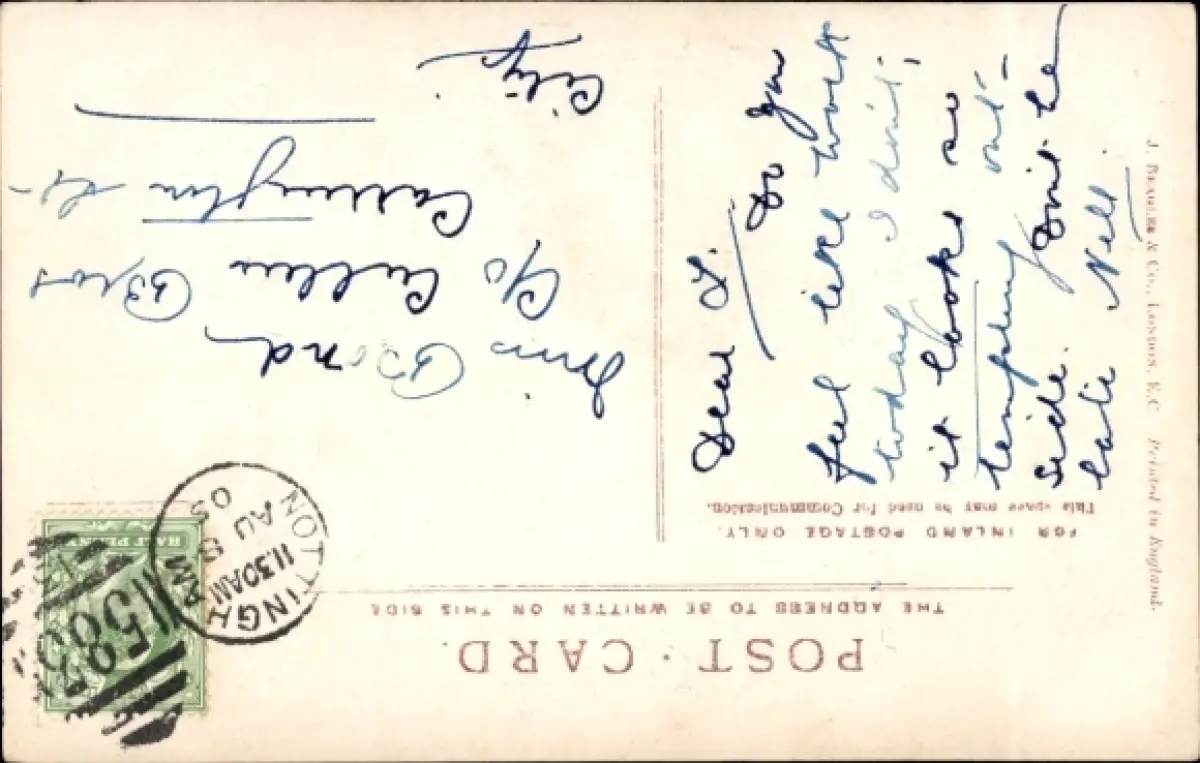 POST · CARD.
THE ADDRESS TO BE WRITTEN ON THIS SIDE
FOR INLAND POSTAGE ONLY.
This space may be used for Communication.
HALF PENNY
NOTTINGHAM
11.30AM
AU 5
05
Dear L.
Do you
feel like work
today I don't,
it looks so
tempting out-
side. Don't be
late Nell.
Miss Bond
c/o Cullen Bros
Carrington St-
City
J. BEAGLES & CO., LONDON, E.C. Printed in England.